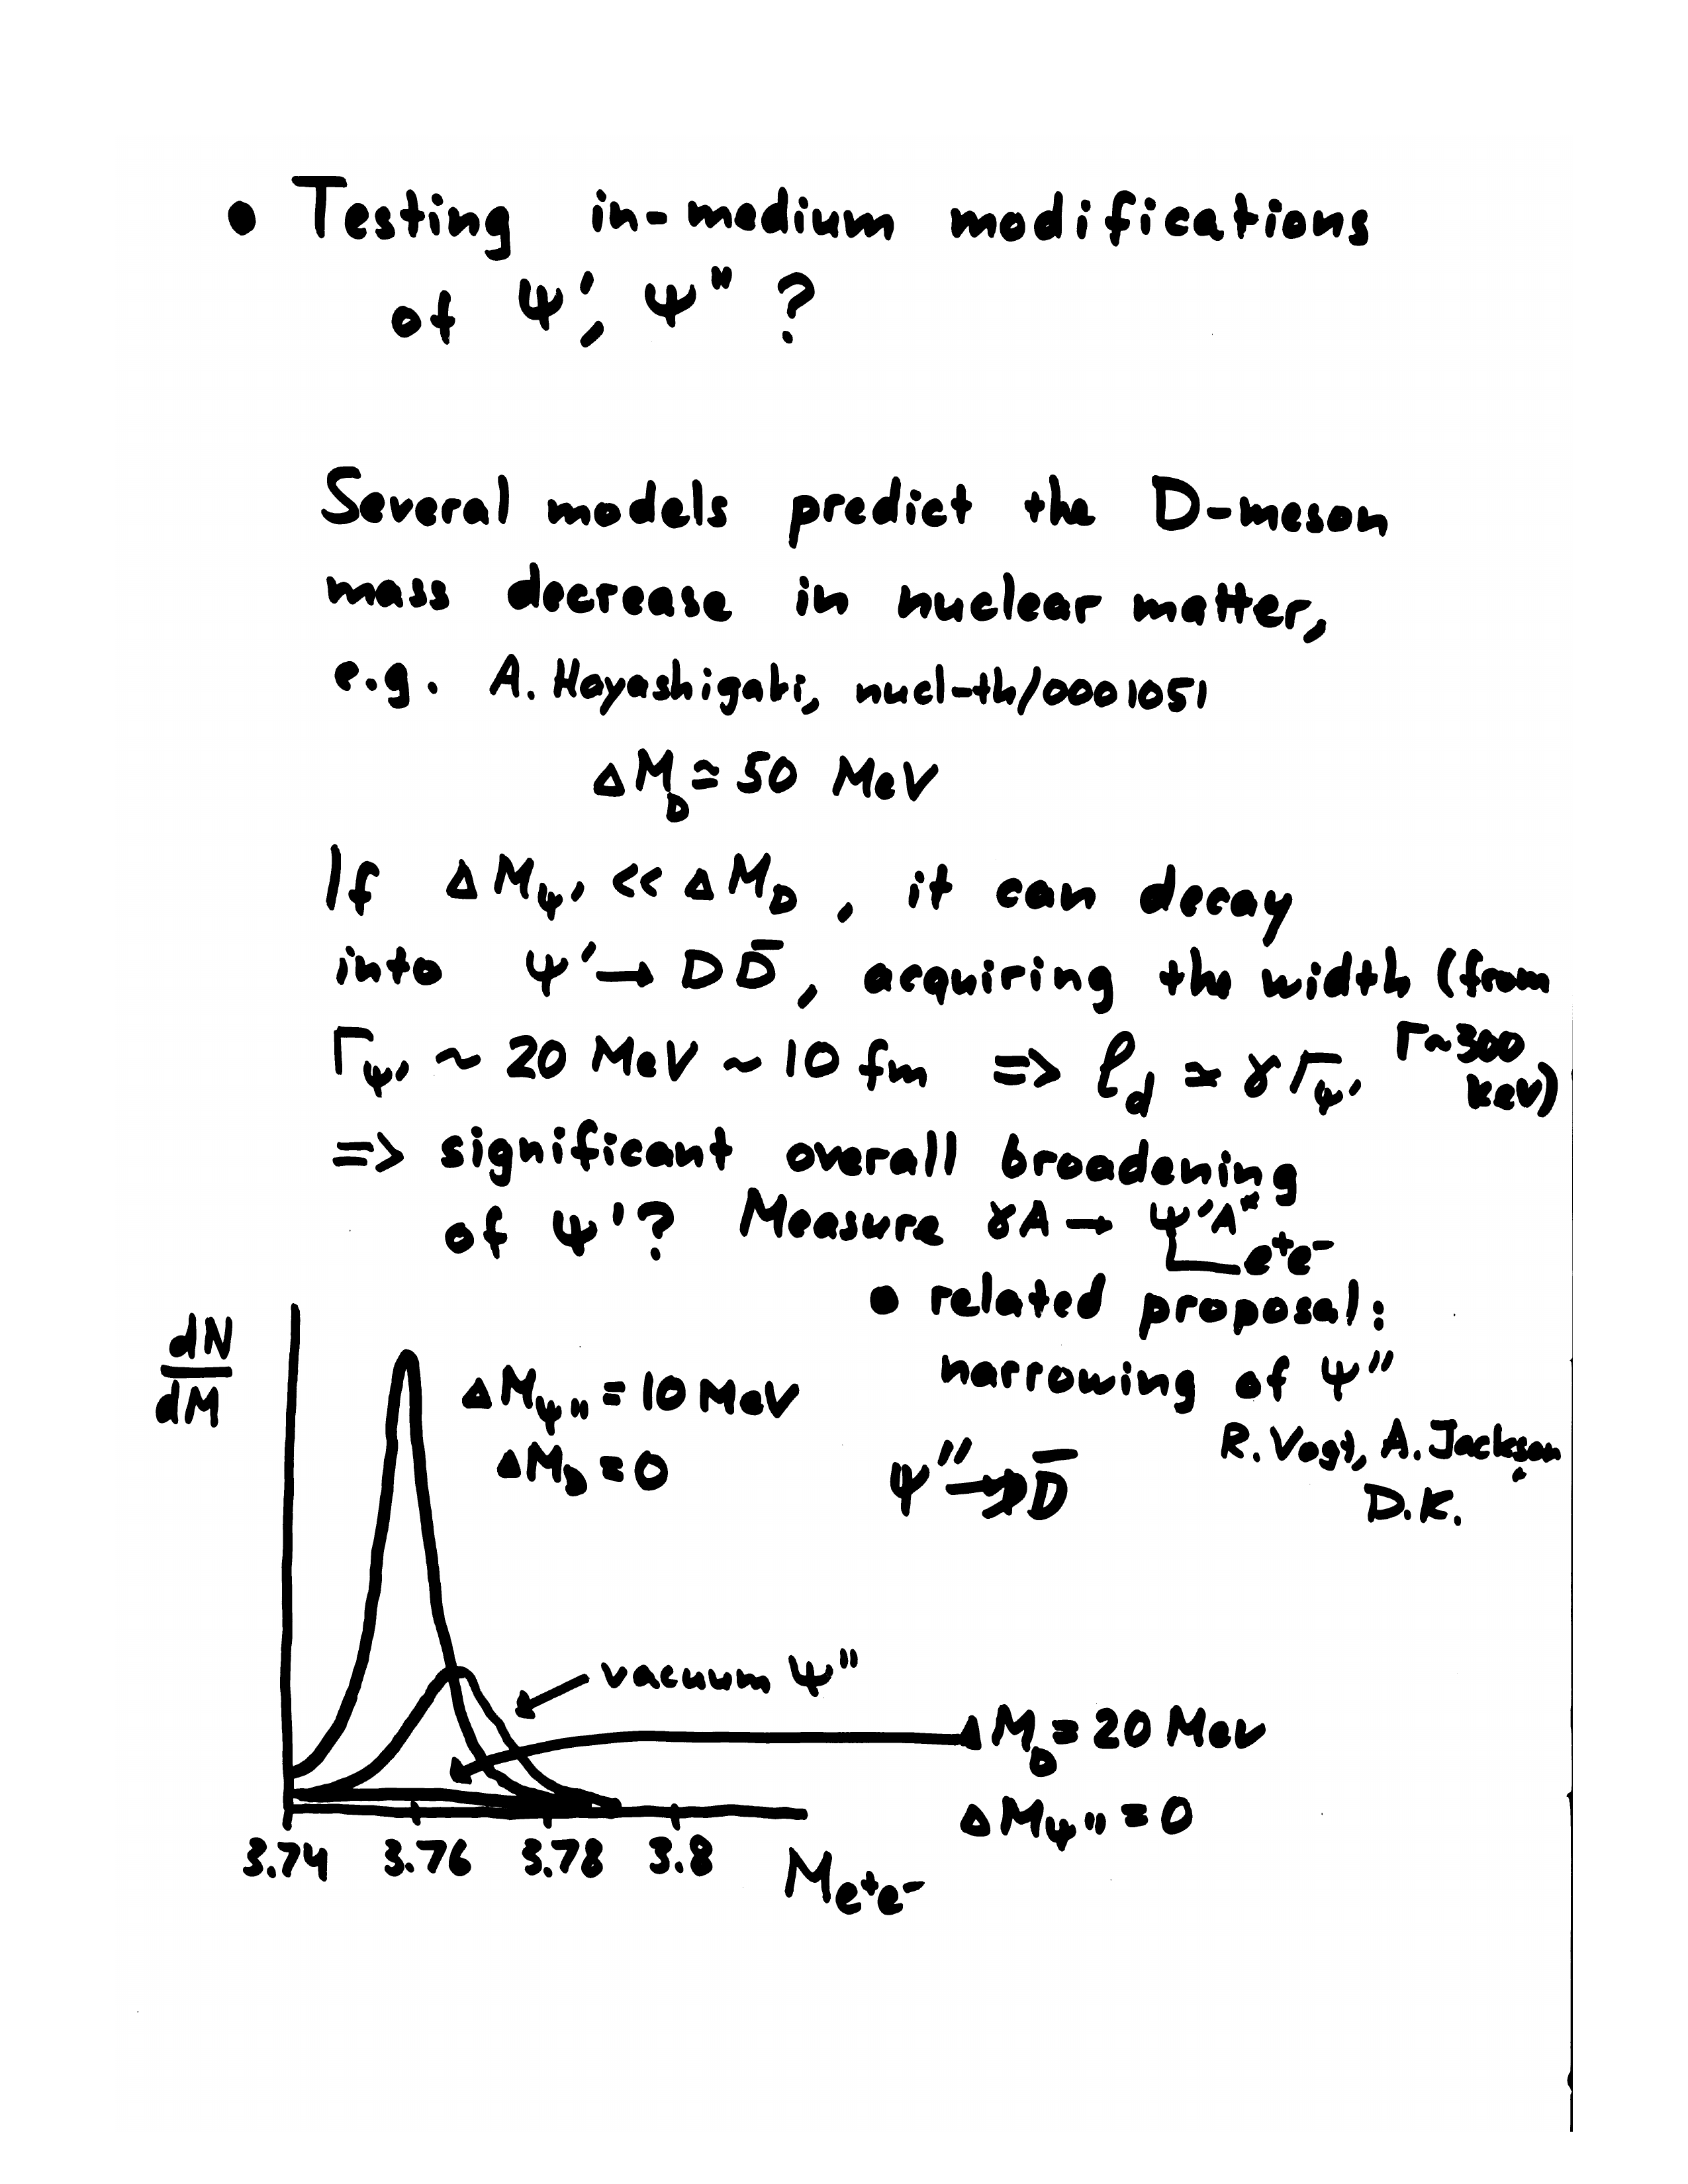 • Testing in-medium modifications
of Ψ', Ψ" ?
Several models predict the D-meson
mass decrease in nuclear matter,
e.g. A. Hayashigaki, nucl-th/0001051
ΔM_D ≃ 50 MeV
If ΔM_Ψ' << ΔM_D, it can decay
into Ψ' → D D̄, acquiring the width (from
Γ_Ψ' ~ 20 MeV ~ 10 fm => ℓ_d ≃ γ Γ_Ψ' Γ~300 keV)
=> significant overall broadening
of Ψ'? Measure γA → Ψ'A*
e+e-
• related proposal:
narrowing of Ψ"
R. Vogt, A. Jackson,
D.K.
Ψ" → D D̄
dN
dM
ΔM_Ψ" = 10 MeV
ΔM_D = 0
vacuum Ψ"
ΔM_D = 20 MeV
ΔM_Ψ" = 0
3.74 3.76 3.78 3.8 M_e+e-